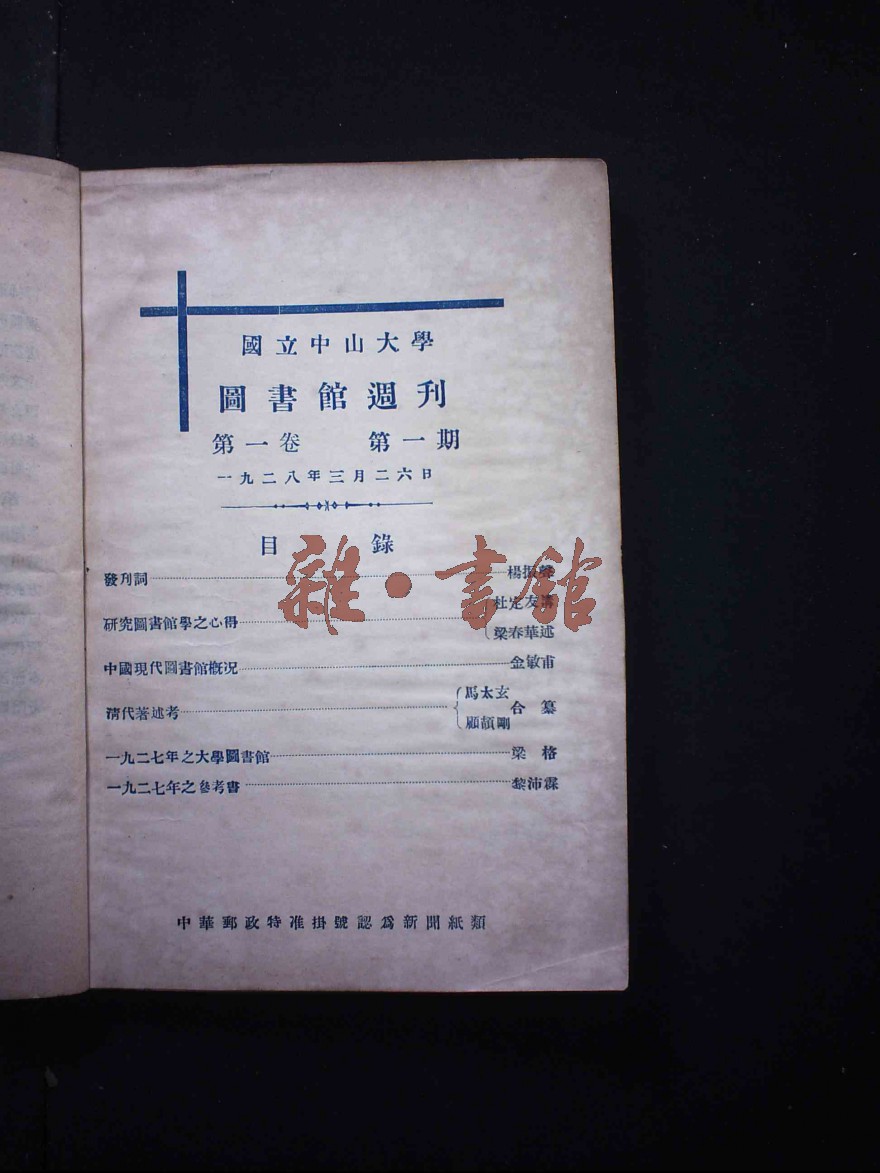 國立中山大學
圖書館週刊
第一卷 第一期
一九二八年三月二六日
目錄
發刊詞 楊振聲
研究圖書館學之心得 杜定友講 梁春華述
中國現代圖書館概况 金敏甫
清代著述考 馬太玄 顧頡剛 合纂
一九二七年之大學圖書館 梁格
一九二七年之參考書 黎沛霖
中華郵政特准掛號認爲新聞紙類
雜·書館